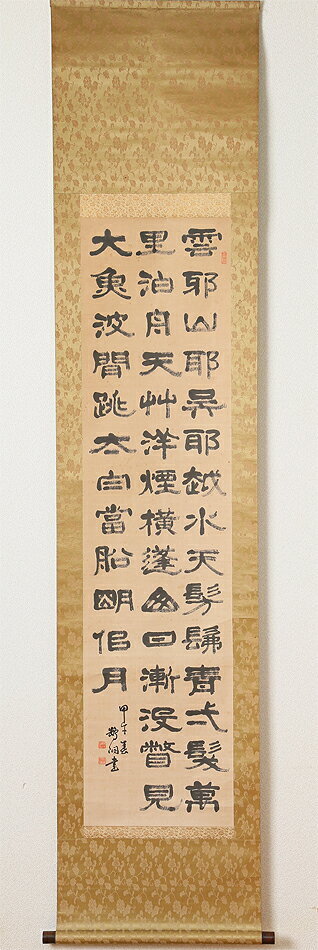 雲耶山耶呉耶越水天髣髴青一髪萬
里泊舟天艸洋煙橫篷窗日漸没瞥見
大魚波間跳太白當船明似月
甲午春 書